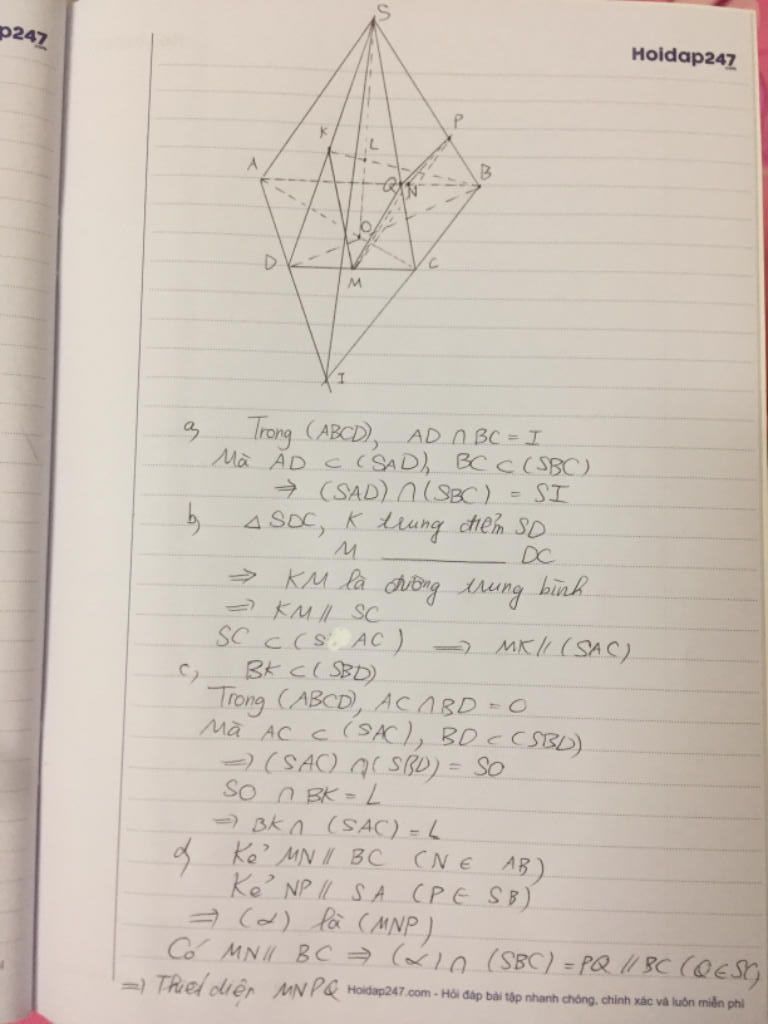 p247
Hoidap247
.com
S
K
L
P
A
Q
N
B
O
D
M
C
I
a, Trong (ABCD), AD ∩ BC = I
Mà AD ⊂ (SAD), BC ⊂ (SBC)
⇒ (SAD) ∩ (SBC) = SI
b, △ SDC, K trung điểm SD
M ________ DC
⇒ KM là đường trung bình
⇒ KM // SC
SC ⊂ (SAC) ⇒ MK // (SAC)
c, BK ⊂ (SBD)
Trong (ABCD), AC ∩ BD = O
Mà AC ⊂ (SAC), BD ⊂ (SBD)
⇒ (SAC) ∩ (SBD) = SO
SO ∩ BK = L
⇒ BK ∩ (SAC) = L
d, Kẻ MN // BC (N ∈ AB)
Kẻ NP // SA (P ∈ SB)
⇒ (α) là (MNP)
Có MN // BC ⇒ (α) ∩ (SBC) = PQ // BC (Q ∈ SC)
⇒ Thiết diện MNPQ
Hoidap247.com - Hỏi đáp bài tập nhanh chóng, chính xác và luôn miễn phí